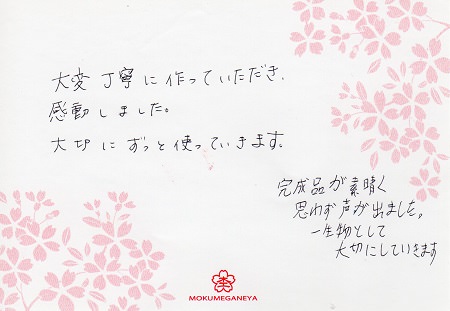 大変丁寧に作っていただき、
感動しました。
大切にずっと使っていきます。
完成品が素晴く
思わず声が出ました。
一生物として
大切にしていきます
MOKUMEGANEYA